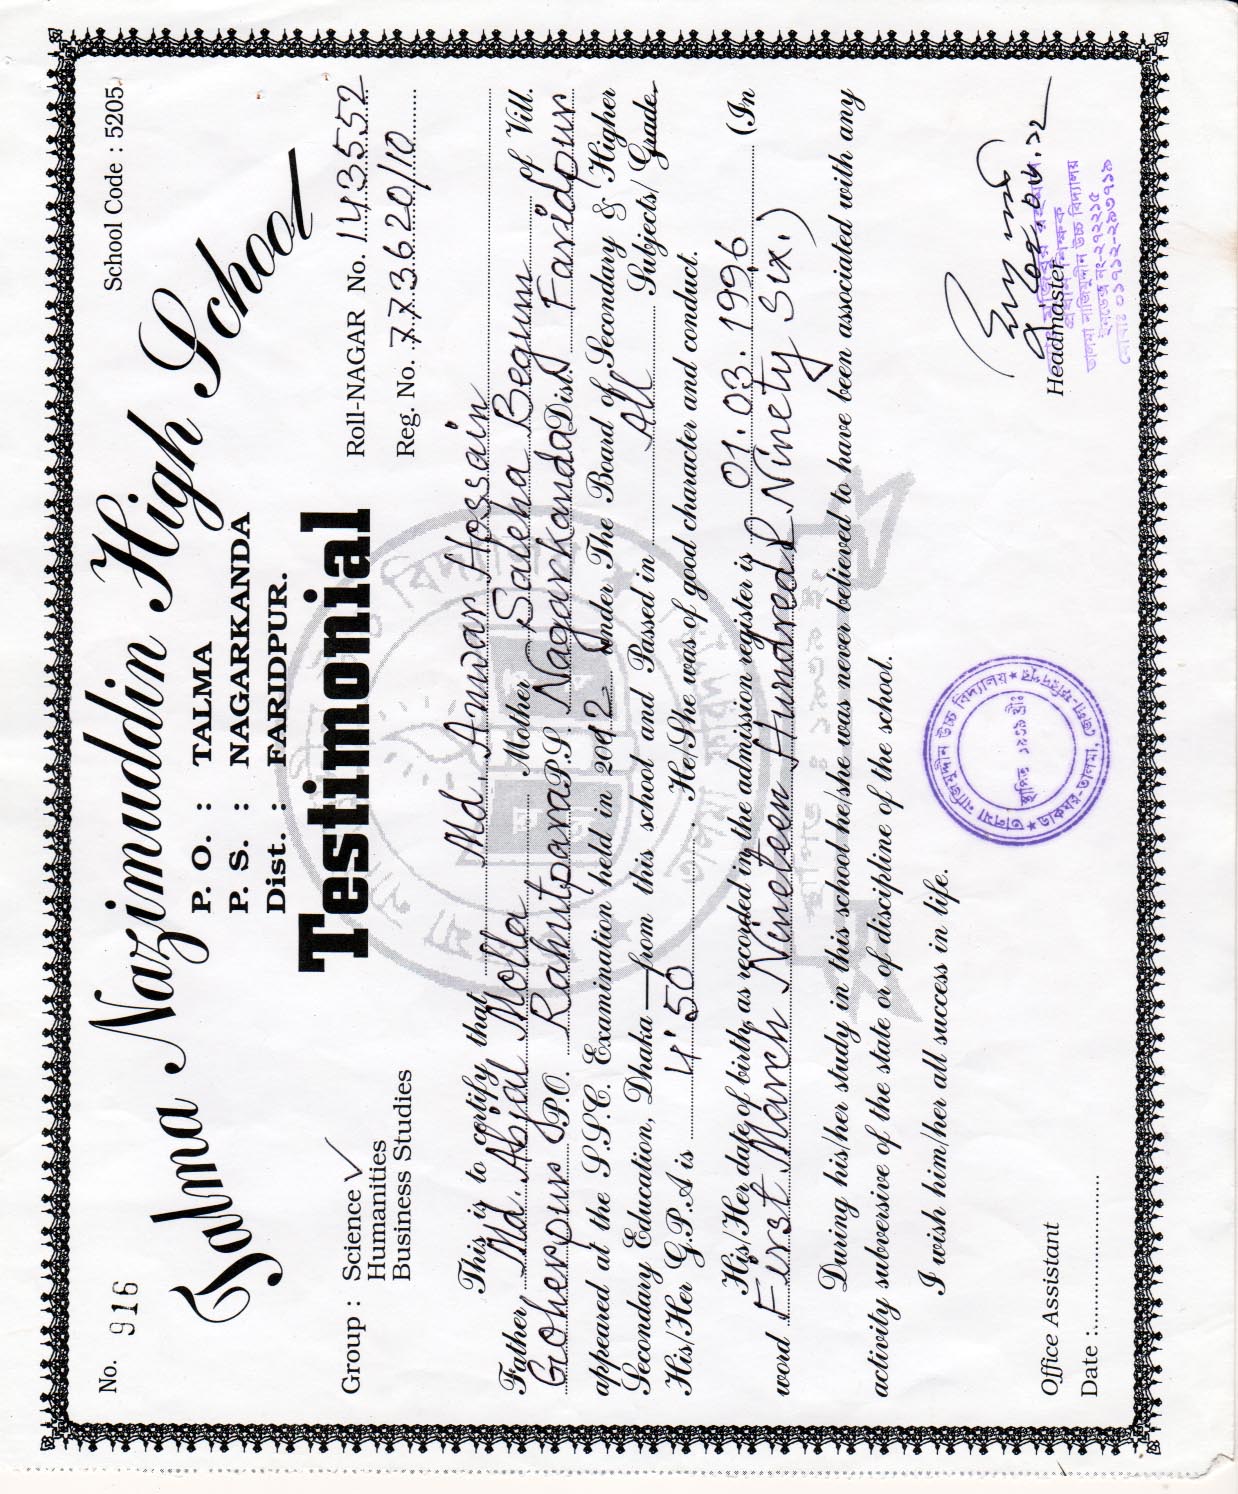 No. 916
School Code : 5205.
Talma Nazimuddin High School
P. O. : TALMA
P. S. : NAGARKANDA
Dist. : FARIDPUR.
Testimonial
Group : Science ✓
Humanities
Business Studies
Roll-NAGAR No. 143552
Reg. No. 773620/10
This is to certify that Md. Anwar Hossain
Father Md. Abjal Molla Mother Saleha Begum of Vill.
Goherpur P.O. Rahutpara P.S. Nagarkanda Dist. Faridpur
appeared at the S.S.C. Examination held in 2012 under The Board of Secondary & Higher
Secondary Education, Dhaka from this school and Passed in All Subjects/ Grade.
His/Her G.P.A is 4'50 He/She was of good character and conduct.
His/Her date of birth, as recorded in the admission register is 01.03.1996 (In
word First March Nineteen Hundred Ninety Six.)
During his/her study in this school he/she was never believed to have been associated with any
activity subversive of the state or of discipline of the school.
I wish him/her all success in life.
তালমা নাজিমুদ্দীন উচ্চ বিদ্যালয়
স্থাপিত ১৯১১ খ্রীঃ
Office Assistant
Date :
Headmaster
প্রধান শিক্ষক
তালমা নাজিমুদ্দীন উচ্চ বিদ্যালয়
ইনডেক্স নং-২৭২২১৫